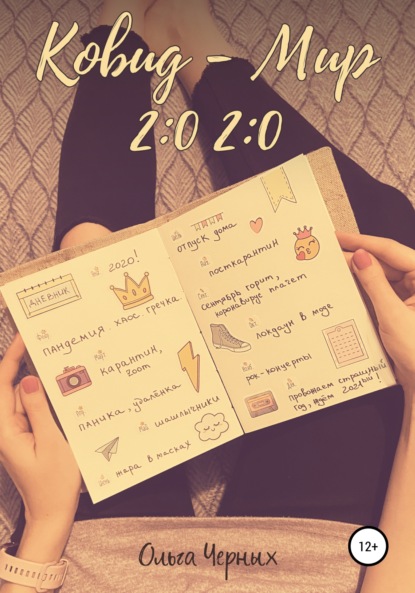 Ковид - Мир
2:0 2:0
ДНЕВНИК
2020!
пандемия. хаос. гречка
карантин,
zoom
паника, удалёнка
шашлычники
жара в масках
отпуск дома
посткарантин
сентябрь горит,
коронавирус плачет
локдаун в моде
рок-концерты
провожаем страшный
год, ждём 2021ый!
Ольга Черных
12+